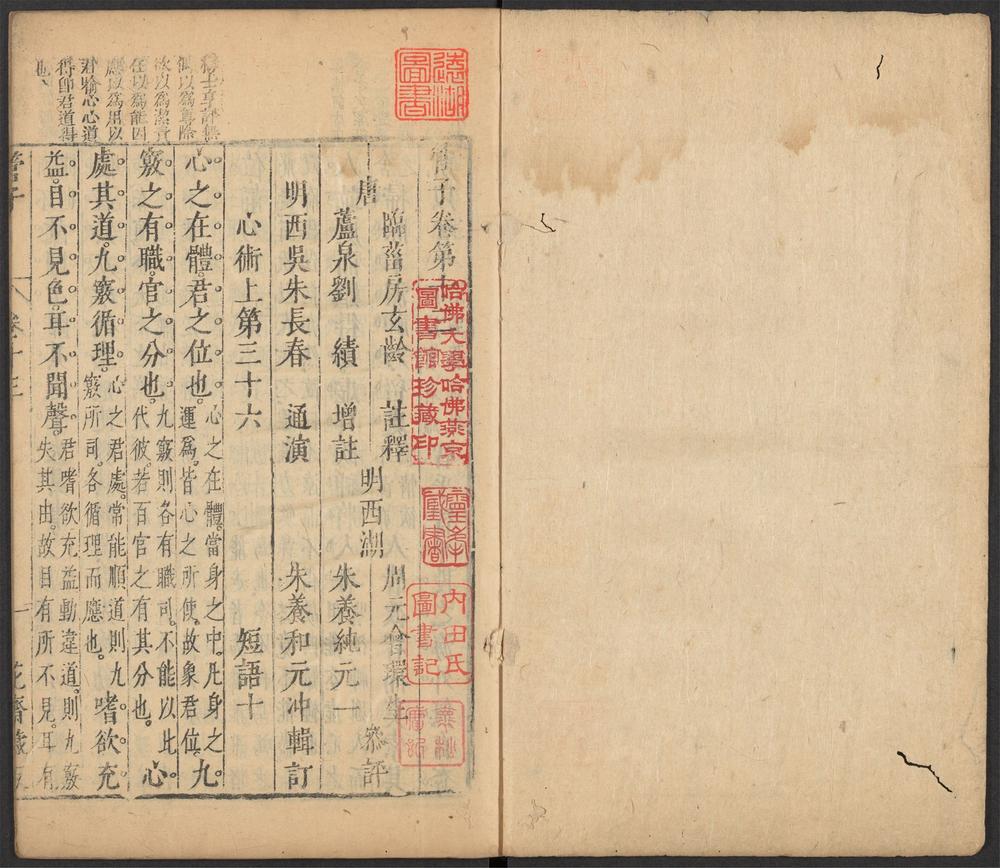 管子卷第十
唐
臨菑房玄齡 註釋
蘆泉劉績 增註
明西吳朱長春 通演
明西湖
周元會環生
朱養純元一 叅評
朱養和元冲輯訂
心術上第三十六 短語十
心之在體君之位也心之在體當身之中凡身之運爲皆心之所使故象君位九
竅之有職官之分也九竅則各有職司不能以此代彼若百官之有其分也心
處其道九竅循理心之君處常能順道則九竅所司各循理而應也嗜欲充
益目不見色耳不聞聲君嗜欲充益動違道則九竅失其由故目有所不見耳有
偶以爲尊除
欲以爲潔貴
在以爲能因
應以爲用以
君喻心心道
得即君道得
也
遠湖圖書
哈佛大學哈佛燕京圖書館珍藏印
內田氏圖書記